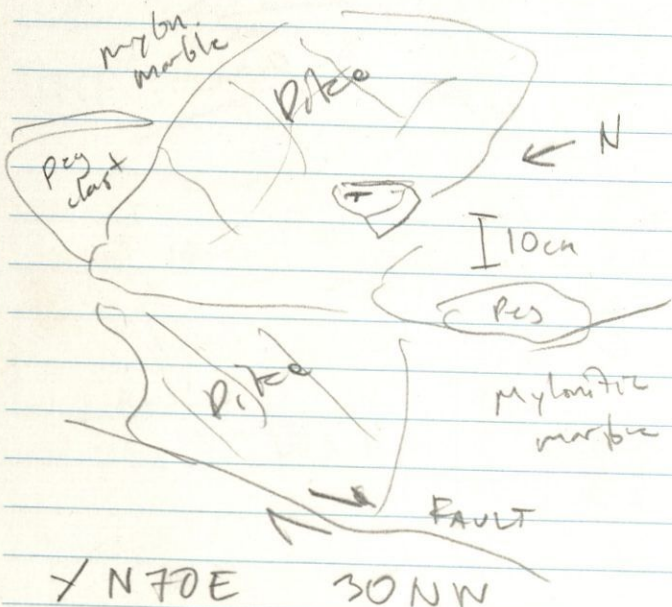 mylon.
marble
Dike
N
Peg
clast
10cm
Peg
Dike
Mylonitic
marble
FAULT
N70E 30NW